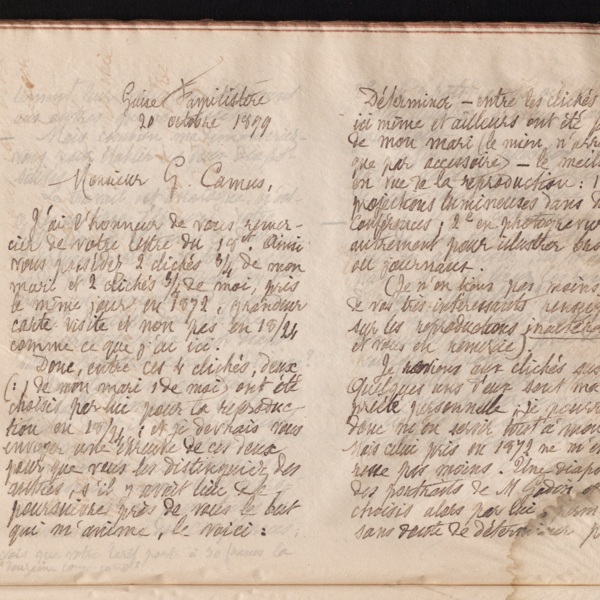 Guise Familistère
20 octobre 1899
Monsieur G. Camus,
J'ai l'honneur de vous remer-
cier de votre lettre du 18 ct. Ainsi
vous possédez 2 clichés 3/4 de mon
mari et 2 clichés 3/4 de moi, pris
le même jour en 1872, grandeur
carte visite et non pas en 18/24
comme ce que j'ai ici.
Donc, entre ces 4 clichés, deux
(1 de mon mari 1 de moi) ont été
choisis par lui pour la reproduc-
tion en 18/24; et je devrais vous
envoyer une épreuve de ces deux
pour que vous les distinguiez des
autres, s'il y avait lieu de
poursuivre près de vous le but
qui m'anime, le voici:
Déterminer – entre les clichés
ici même et ailleurs ont été
de mon mari (le mien, n'
que par accessoire) – le meil
en vue de la reproduction: 1
projections lumineuses dans
conférences; 2° en photogravur
autrement pour illustrer
ou journaux.
(Je n'en tiens pas moins
de vos très intéressants
sur les reproductions inaltéra
et vous en remercie)
Je reviens aux clichés
Quelques uns d'eux sont ma
priété personnelle, je pourr
donc m'en servir tout à mon
Mais celui pris en 1872 ne m'
resse pas moins. Une
des portraits de M. Godin
choisis alors par lui,
sans doute de déterminer